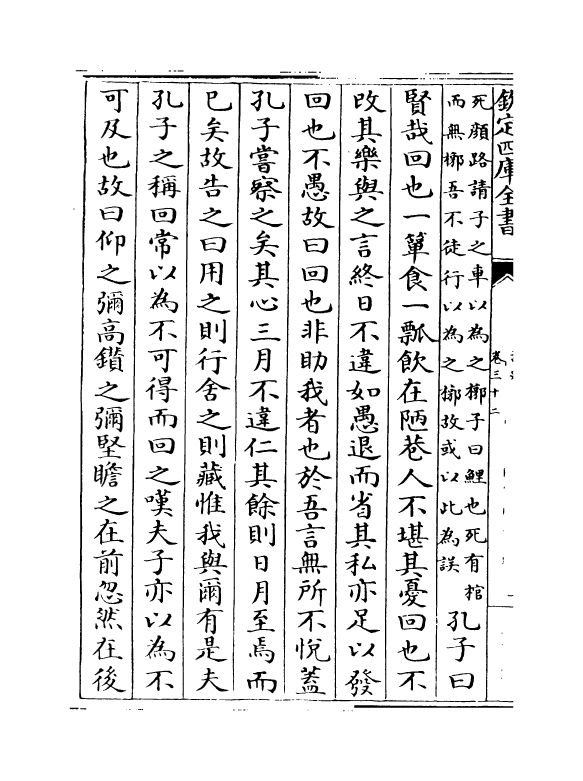 欽定四庫全書
卷三十二
死顔路請子之車以為之槨子曰鯉也死有棺
而無槨吾不徒行以為之槨故或以此為誤
孔子曰
賢哉回也一簞食一瓢飲在陋巷人不堪其憂回也不
改其樂與之言終日不違如愚退而省其私亦足以發
回也不愚故曰回也非助我者也於吾言無所不悅蓋
孔子嘗察之矣其心三月不違仁其餘則日月至焉而
已矣故告之曰用之則行舍之則藏惟我與爾有是夫
孔子之稱回常以為不可得而回之嘆夫子亦以為不
可及也故曰仰之彌高鑽之彌堅瞻之在前忽然在後